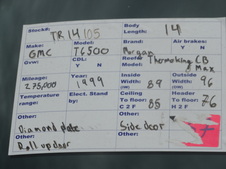 Stock#: TR 14105 Body Length: 14
Make: GMC Model: T6500 Brand: Morgan Air brakes: Y N
Gvw: CDL: Y N Reefer Model: Thermoking CB Max
Mileage: 275,000 Year: 1999 Inside Width: 89 Outside Width: 96
Temperature range: Elect. Stand by: Ceiling To floor: H 2 F 85 Header To floor: H 2 F 76
Other: Diamond plate Other: Side door
Other: Roll up door Other: